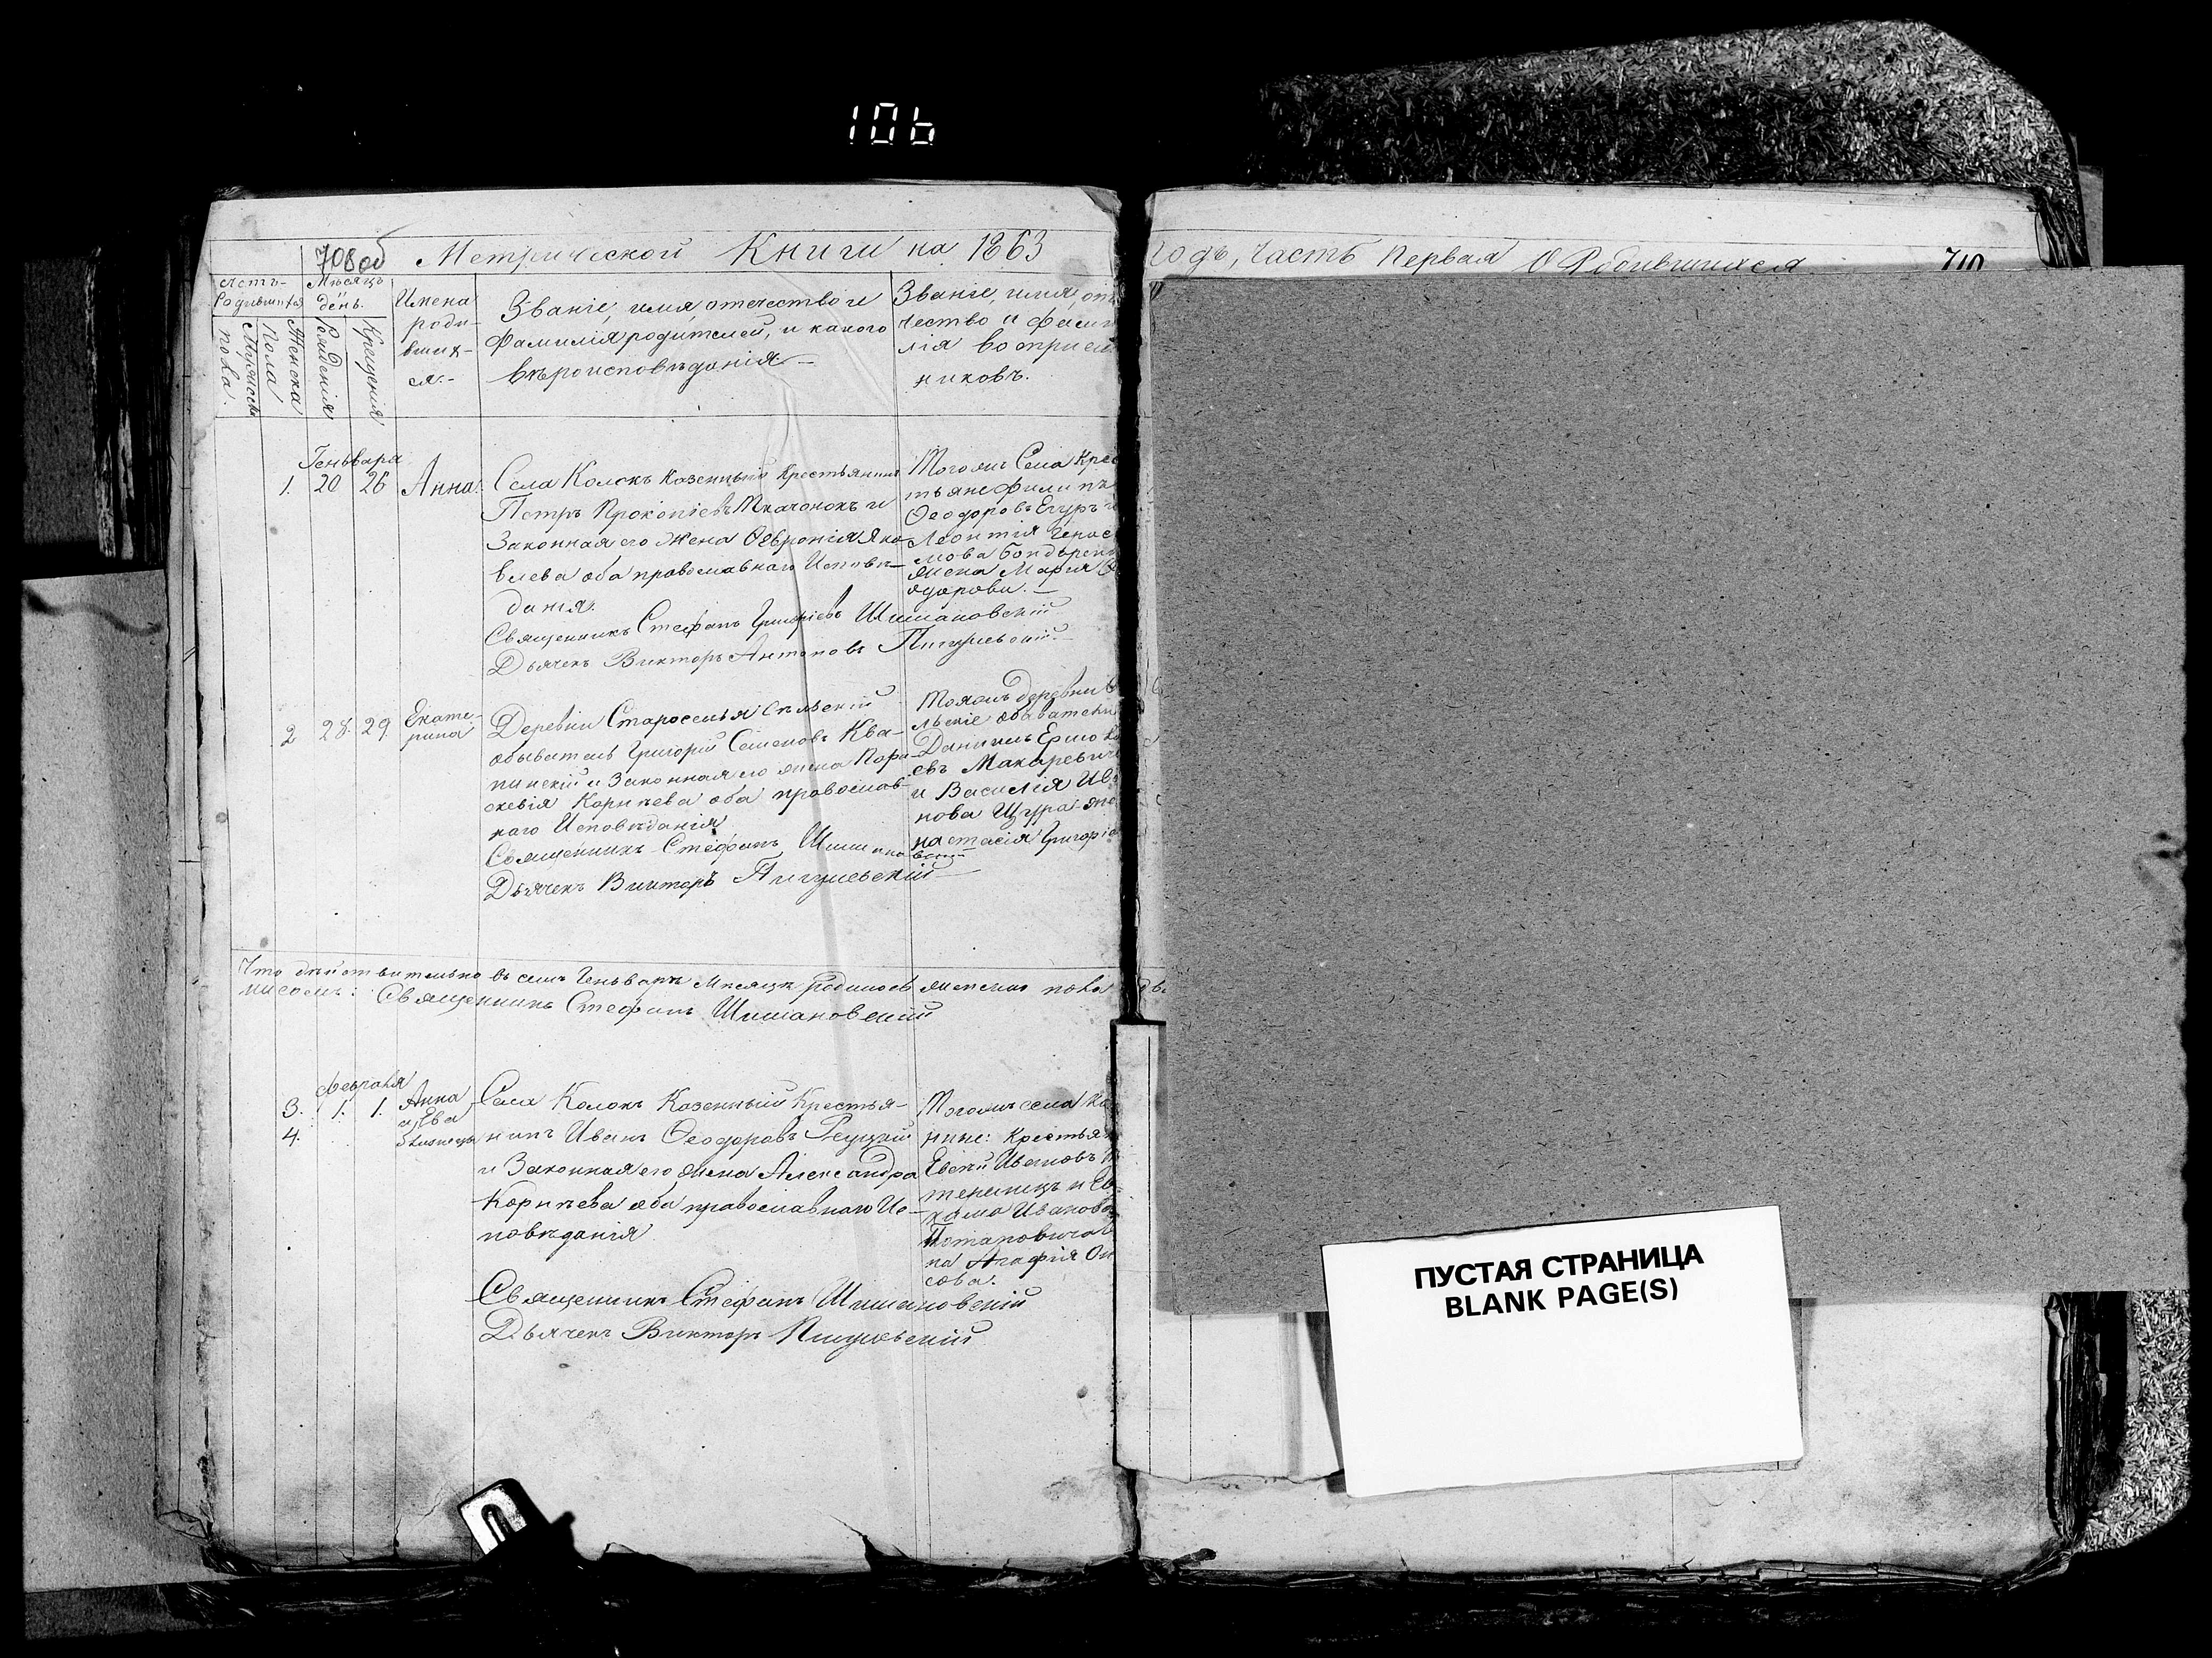 106
708об Метрической Книги на 1863
годъ, Часть Первая О Родившихся 710
Счетъ Родившихся
Мѣсяцъ и день.
Имена роди-
вших-
ся.-
Званіе, имя, отечество и
Фамилія родителей, и какого
вѣроисповѣданія —
Званіе, имя, оте
чество и фами
лія воспріем
никовъ.
Мужеска пола.
Женска Пола
Рожденія
Крещенія
Геньваря
1. 20 26 Анна.
Села Колокъ Казенный Крестьянинъ
Петръ Прокопіевъ Ткачонокъ и
Законная его Жена Февронія Яко-
влева оба православнаго Исповѣ-
данія.
Священникъ Стефанъ Григоріевъ Шимановскій
Дьячекъ Викторъ Антоновъ
Тогожъ Села Крес
тьяне Филипъ
Феодоровъ
Леонтія
мова
жена Марія
одорова. —
2 28. 29. Екате-
рина
Деревни Староселья Сѣльскій
обыватель Григорій Семеновъ Ква-
пинскій и Законная его жена Пара-
скевія Корнѣева оба православ-
наго Исповѣданія
Священникъ Стефанъ Шимановскій
Дьячекъ Викторъ
Тояжъ деревни С
льскіе обыватели
Даніилъ Ермола
евъ Макаревич
и Василія Ив
нова
настасія Григорі
Что дѣйствительно въ семъ Геньварѣ Мѣсяцѣ родилось женска пола
числомъ: Священникъ Стефанъ Шимановскій
Февраля
3. 1. 1. Анна
и Ева
4. близнецы
Села Колокъ Казенный Крестья-
нинъ Иванъ Феодоровъ Рецкій
и Законная его жена Александра
Корнѣева оба православнаго Ис-
повѣданія
Священникъ Стефанъ Шимановскій
Дьячекъ Викторъ
Тогожъ села Ка
нные: Крестьян
Ивановъ
и Ев
Иванова
Потаповича
на Агафія Они
сова.
ПУСТАЯ СТРАНИЦА
BLANK PAGE(S)